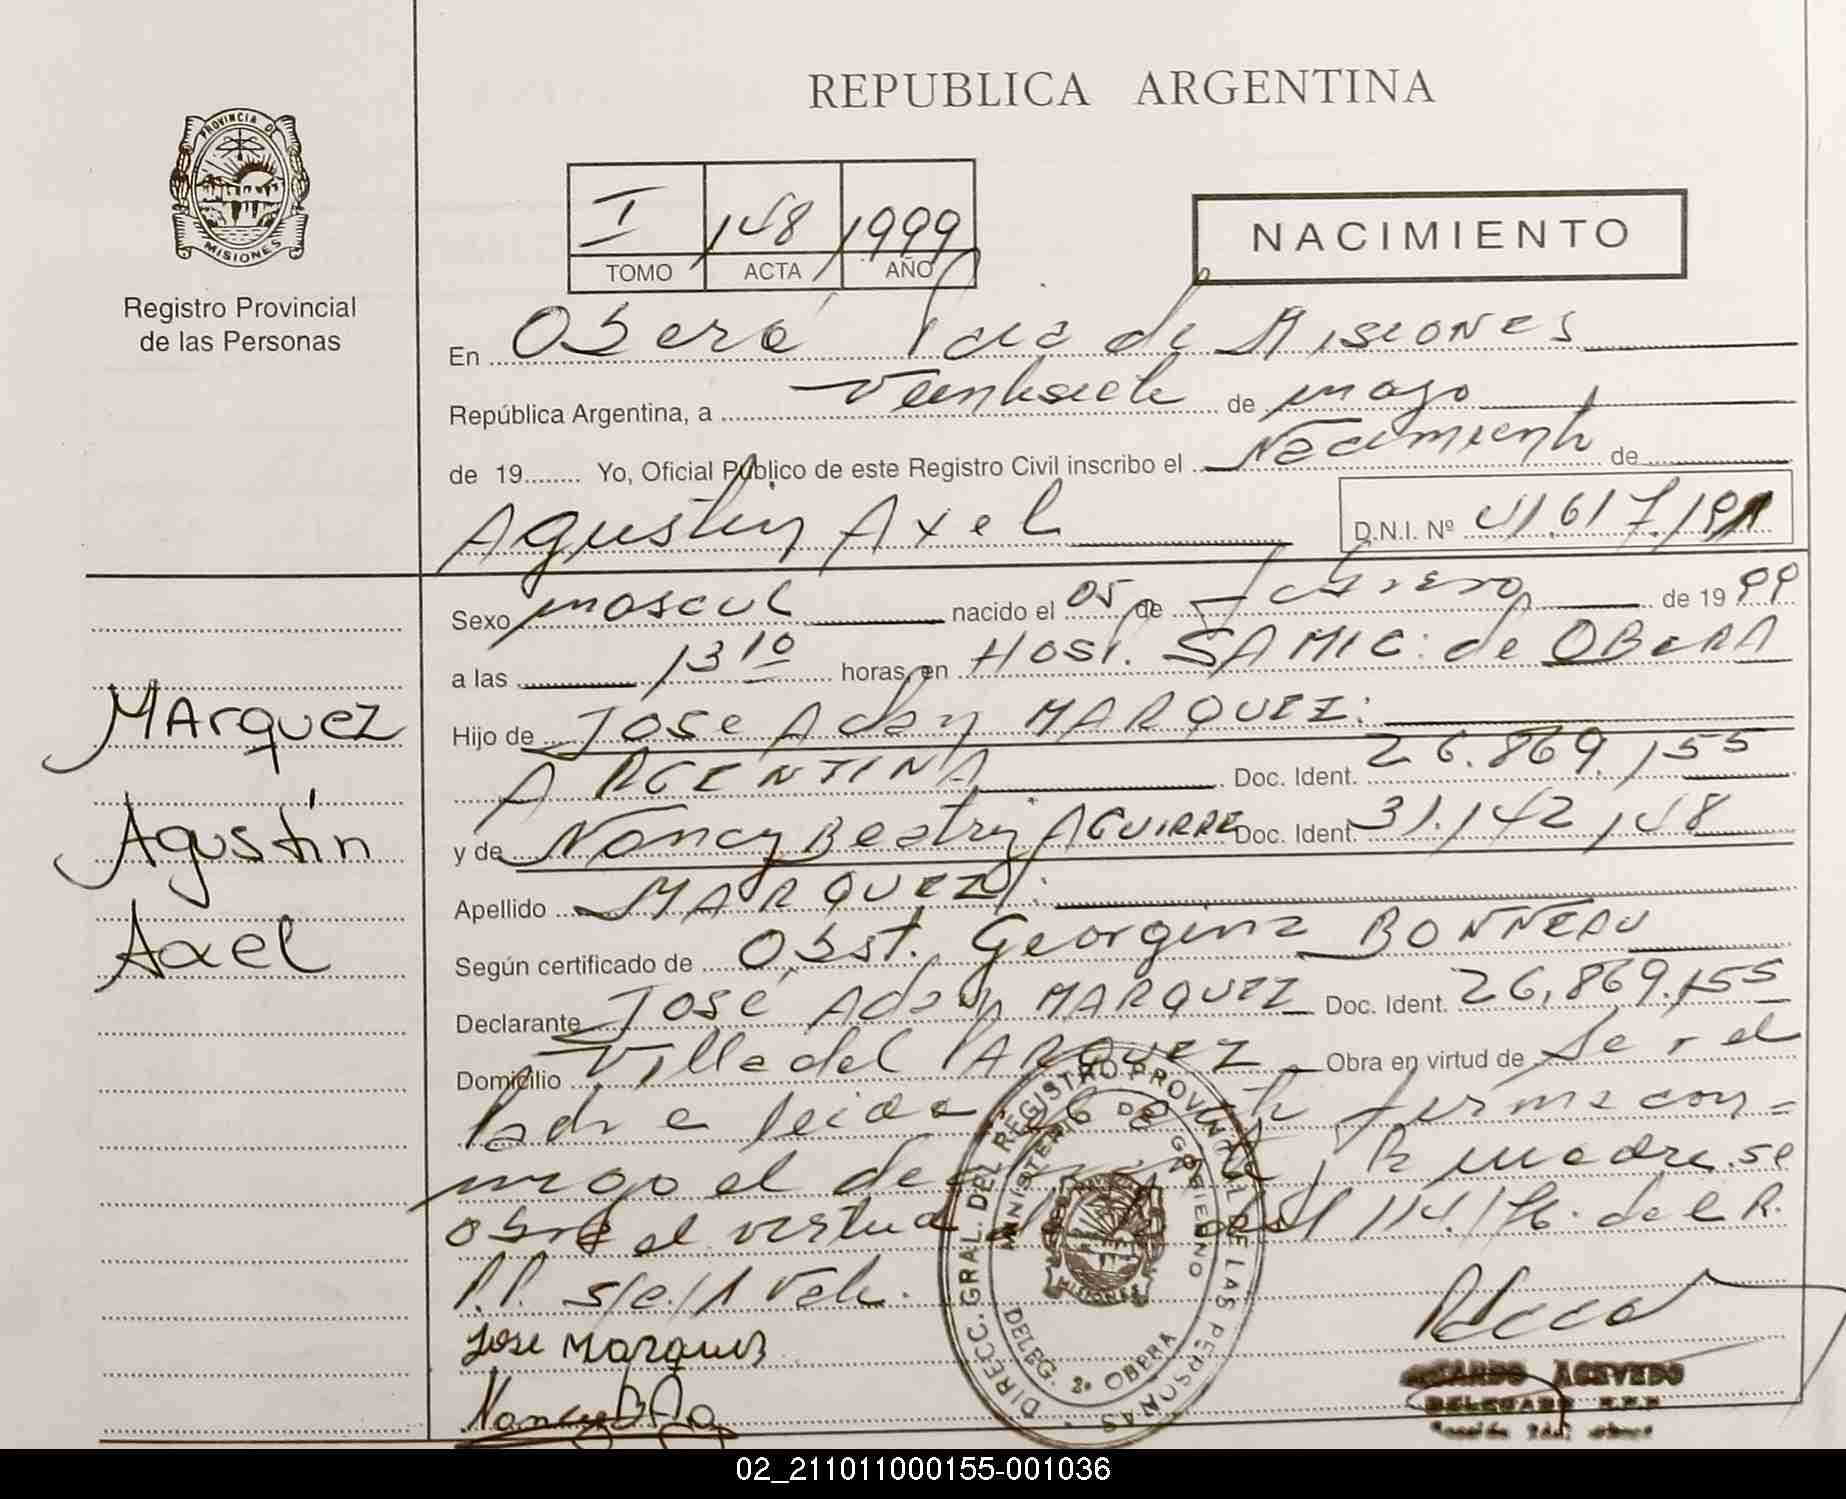 REPUBLICA ARGENTINA
PROVINCIA DE
MISIONES
Registro Provincial
de las Personas
I 148 1999
TOMO ACTA AÑO
NACIMIENTO
En Oberá Pcia de Misiones
República Argentina, a Veintisiete de mayo
de 19........ Yo, Oficial Público de este Registro Civil inscribo el Nacimiento de
Agustin Axel D.N.I. Nº 41.617.191
Sexo mascul nacido el 05 de febrero de 1999
a las 13 10 horas, en Hosp. SAMIC: de OBERA
Hijo de Jose Adan MARQUEZ:
ARGENTINA Doc. Ident. 26.869.155
y de Nancy Beatriz AGUIRRE Doc. Ident. 31.142.148
Apellido MARQUEZ:
Según certificado de Obst. Georgina BONNEAU
Declarante José Adan MARQUEZ Doc. Ident. 26.869.155
Domicilio Villa del PARQUE Obra en virtud de Ser el
Padre leida el acta firma con=
migo el declarante, la madre se
obra el virtud 114.176. del R.
P.P. s/e/1 Vale.
Jose Marquez
Nancy
MArquez
Agustin
Axel
DIRECC. GRAL. DEL REGISTRO PROVINCIAL DE LAS PERSONAS
MINISTERIO DE GOBIERNO
DELEG. 2ª OBERA
MISIONES
ACEVEDO
DELEGADO R.P.P.
02_211011000155-001036